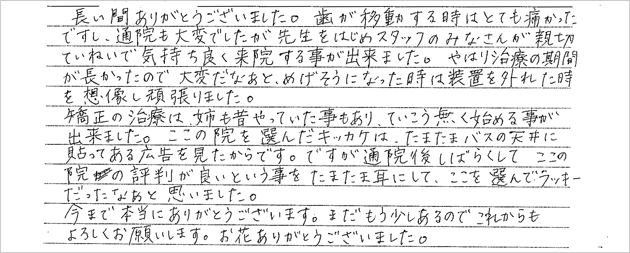 長い間ありがとうございました。歯が移動する時はとても痛かった
ですし、通院も大変でしたが先生をはじめスタッフのみなさんが親切
ていねいで気持ち良く来院する事が出来ました。やはり治療の期間
が長かったので大変だなあと、めげそうになった時は装置を外れた時
を想像し頑張りました。
矯正の治療は、姉も昔やっていた事もあり、ていこう無く始める事が
出来ました。ここの院を選んだキッカケは、たまたまバスの天井に
貼ってある広告を見たからです。ですが通院後しばらくして ここの
院の評判が良いという事をたまたま耳にして、ここを選んでラッキー
だったなあと思いました。
今まで本当にありがとうございます。まだもう少しあるのでこれからも
よろしくお願いします。お花ありがとうございました。